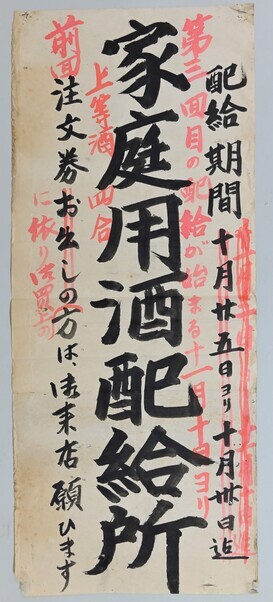 配給期間十月廿五日ヨリ十月卅日迠
第三回目の配給が始まる十一月十日ヨリ
家庭用酒配給所
上等酒四合
前回
注文券お出しの方は、御来店願ひます
に依り